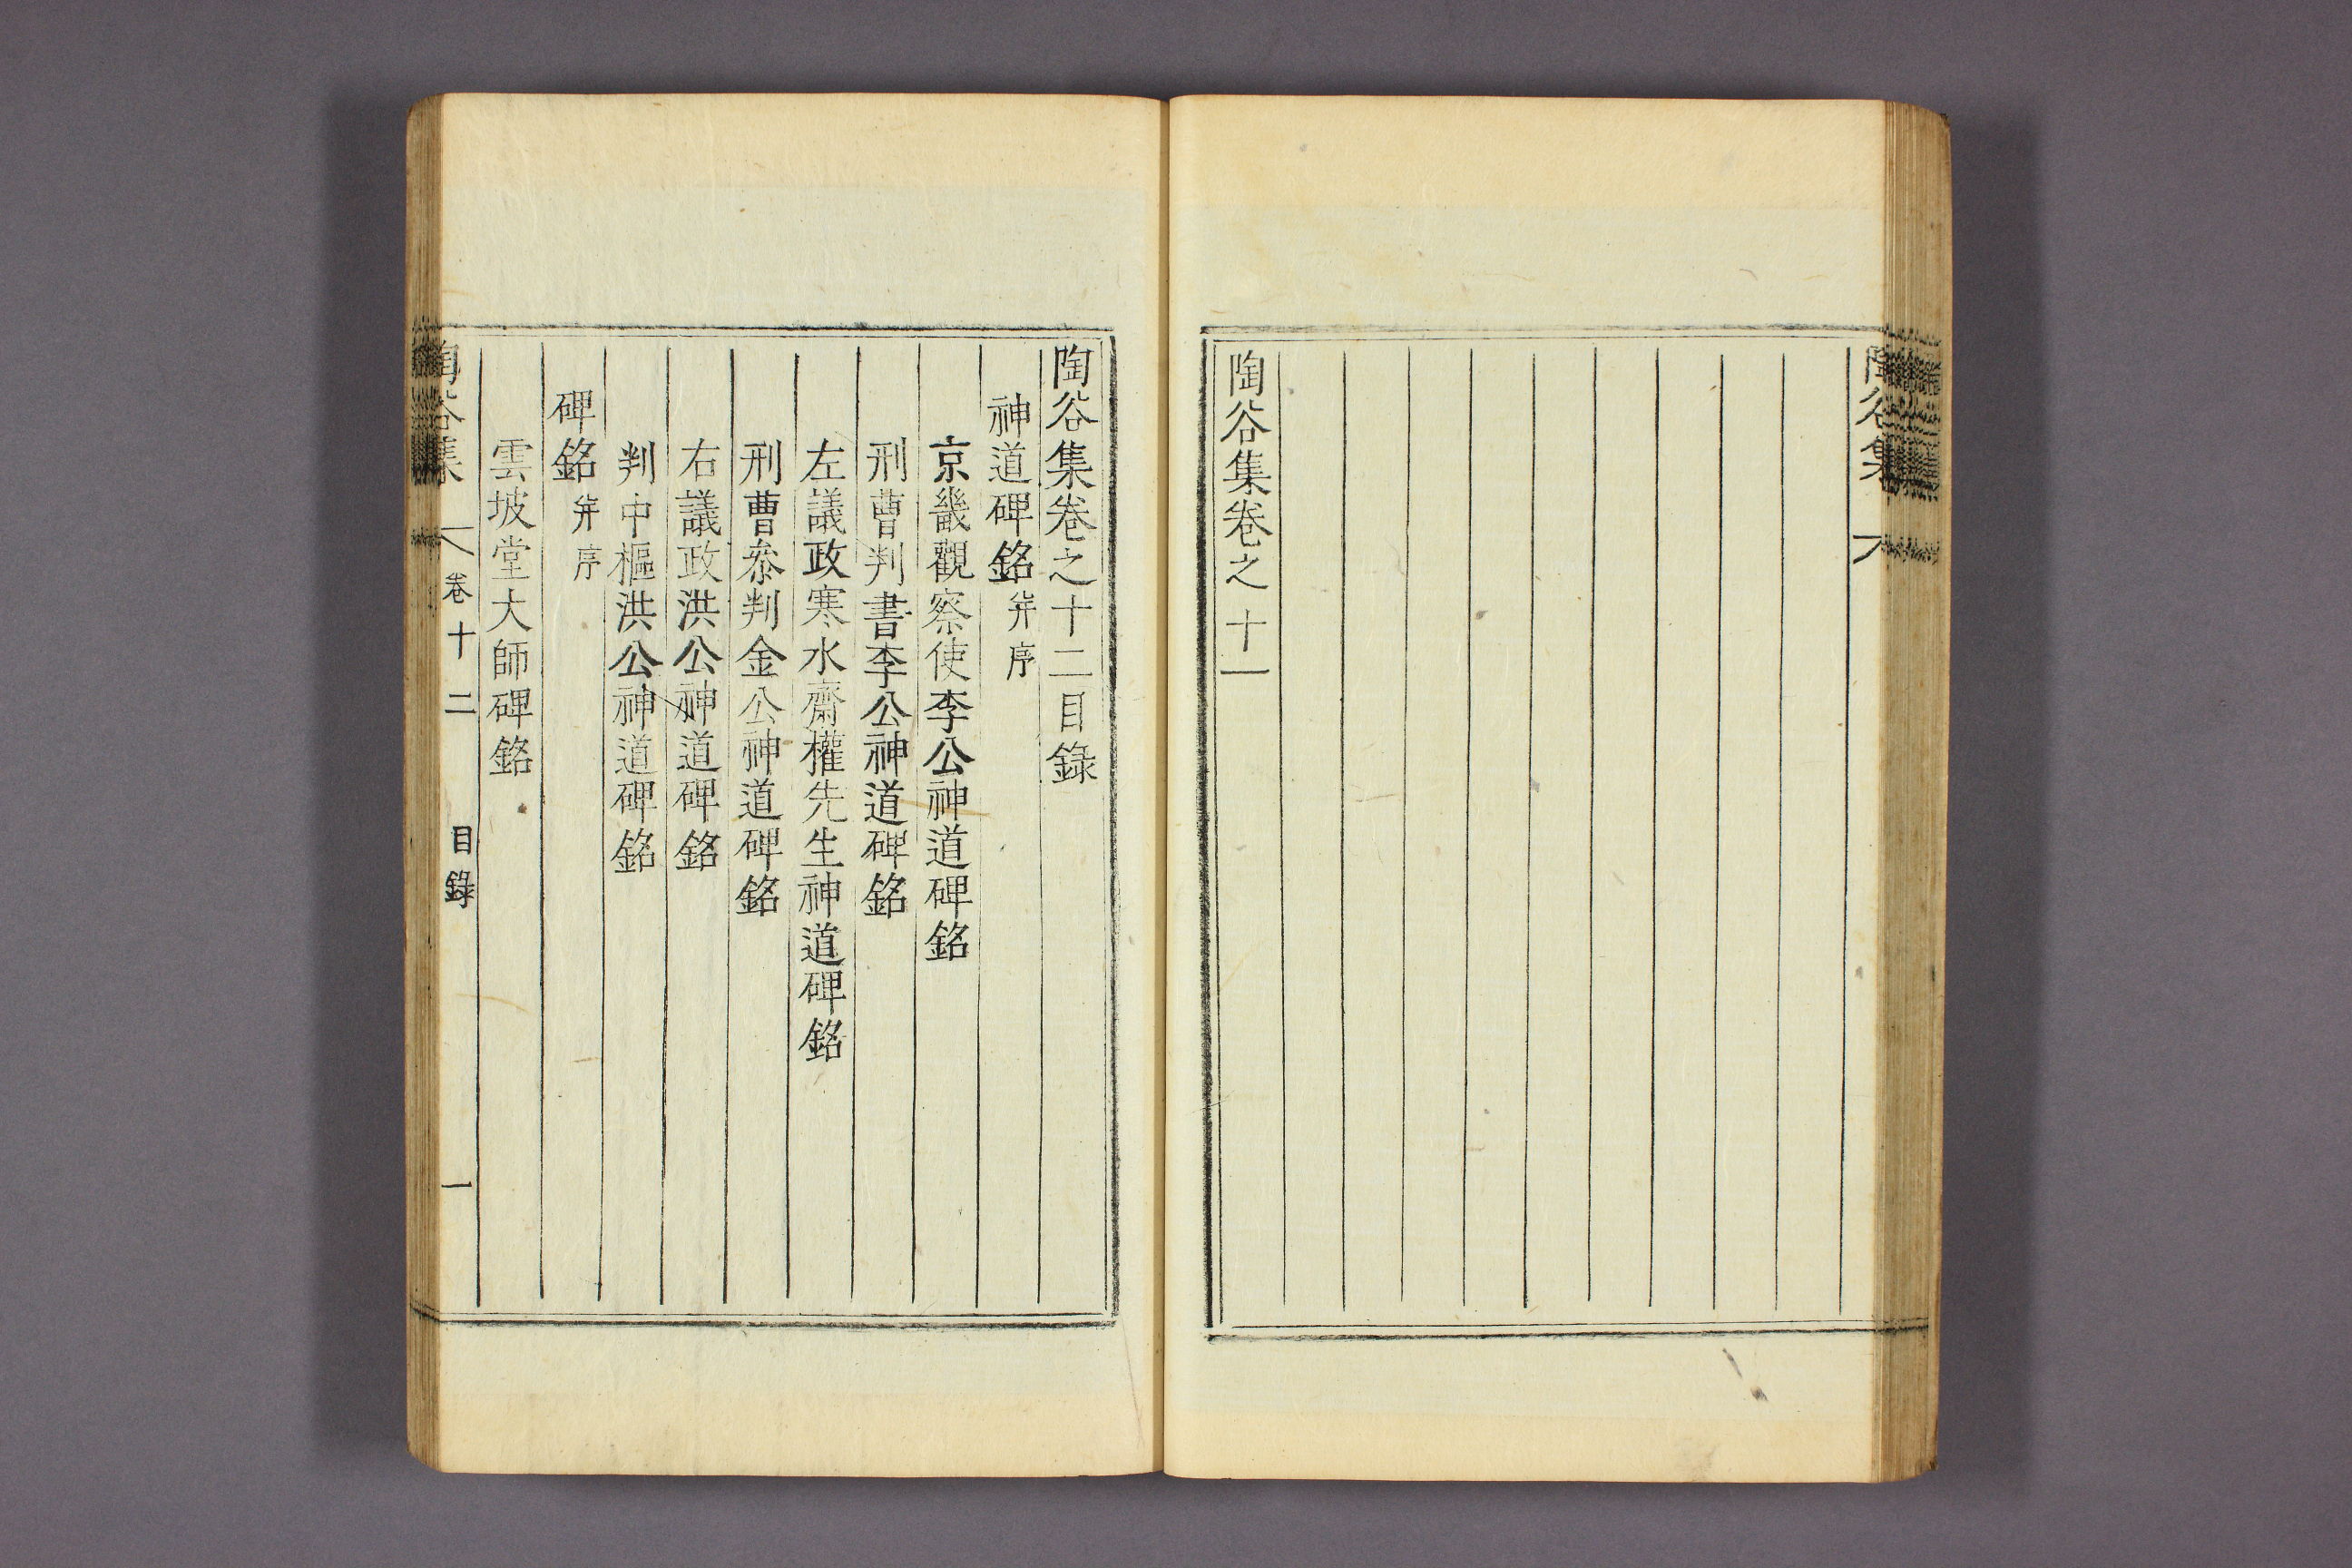 陶谷集
陶谷集卷之十一
陶谷集卷之十二目錄
神道碑銘 幷序
京畿觀察使李公神道碑銘
刑曹判書李公神道碑銘
左議政寒水齋權先生神道碑銘
刑曹叅判金公神道碑銘
右議政洪公神道碑銘
判中樞洪公神道碑銘
碑銘 幷序
雲坡堂大師碑銘
陶谷集 卷十二 目錄 一